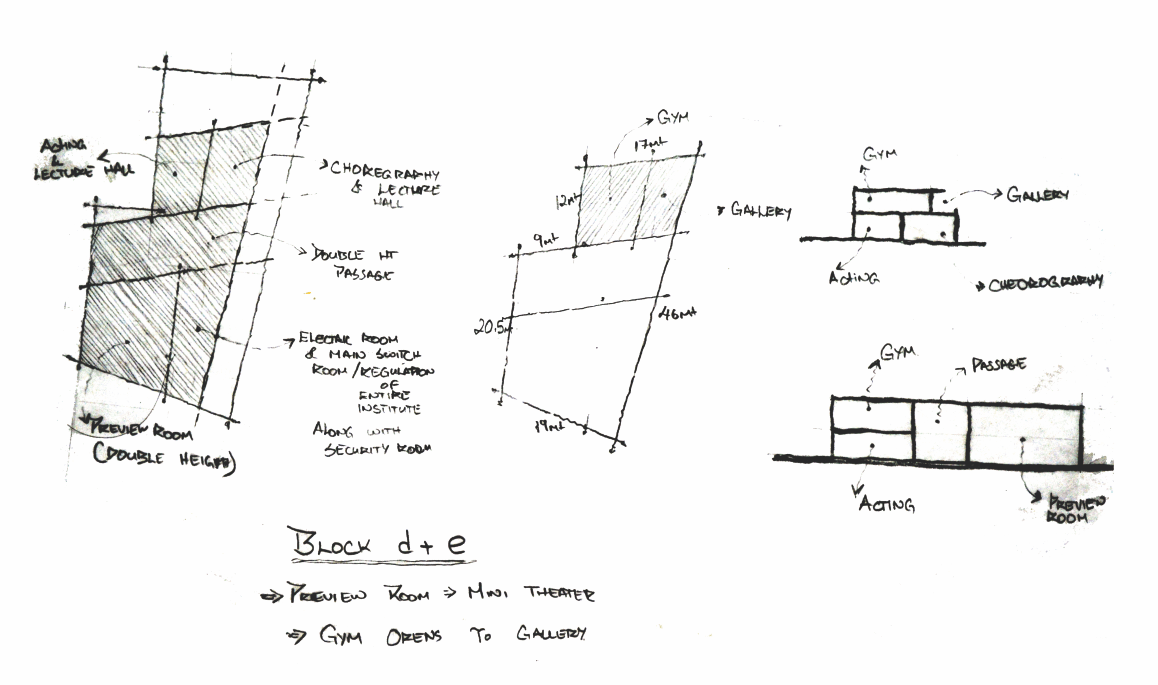 ACTING
&
LECTURE HALL
CHOREGRAPHY
& LECTURE
HALL
DOUBLE HT
PASSAGE
ELECTRIC ROOM
& MAIN SWITCH
ROOM/REGULATION
OF
ENTIRE
INSTITUTE
ALONG WITH
SECURITY ROOM
PREVIEW ROOM
(DOUBLE HEIGHT)
GYM
17mt
12mt
GALLERY
9mt
20.5m
46mt
19mt
GYM
GALLERY
ACTING
CHEOROGRAPHY
GYM
PASSAGE
ACTING
PREVIEW
ROOM
BLOCK d+e
⇒ PREVIEW ROOM ⇒ MINI THEATER
⇒ GYM OPENS TO GALLERY